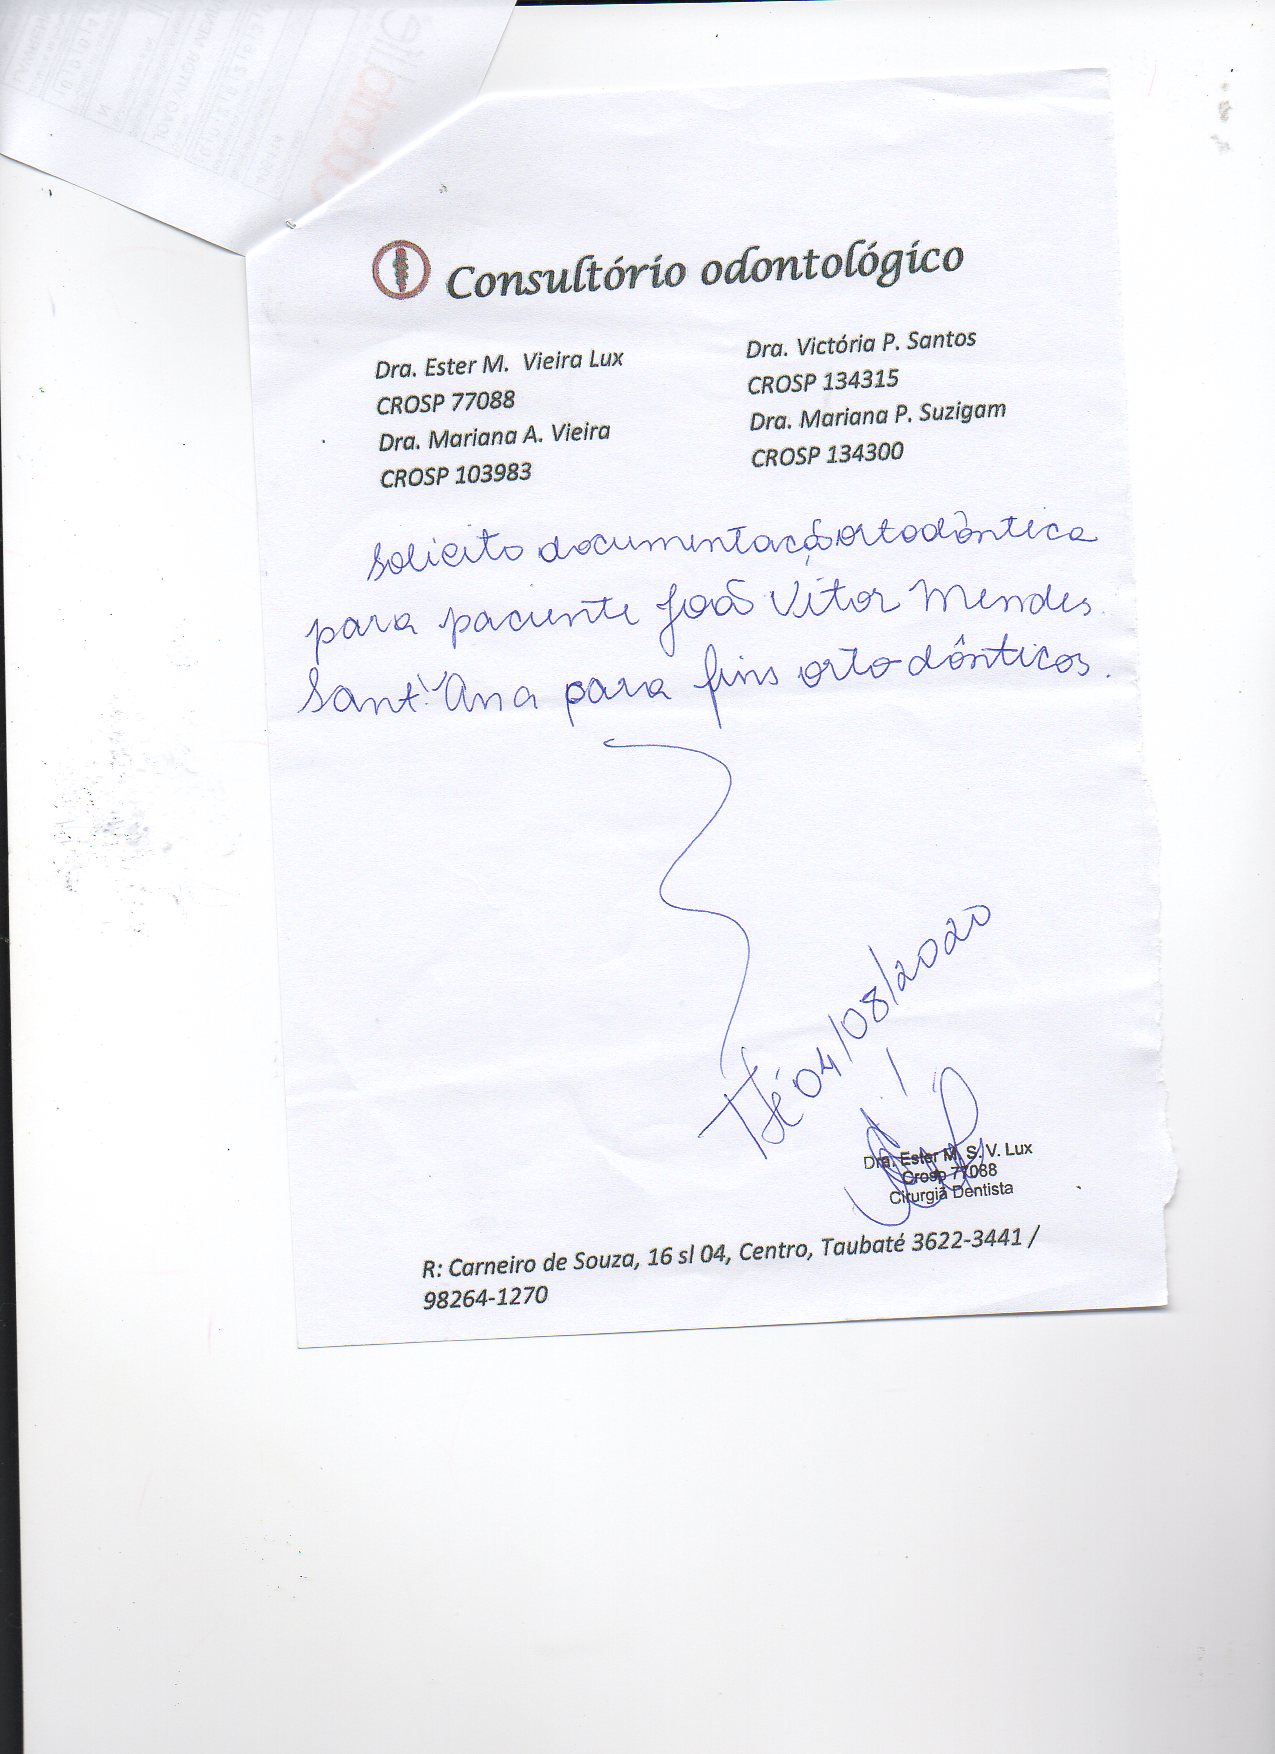 Consultório odontológico
Dra. Ester M. Vieira Lux
CROSP 77088
Dra. Mariana A. Vieira
CROSP 103983
Dra. Victória P. Santos
CROSP 134315
Dra. Mariana P. Suzigam
CROSP 134300
Solicito documentação ortodôntica
para paciente João Vitor Mendes
Sant'Ana para fins ortodônticos.
Tté 04/08/2020
Dra. Ester M. S. V. Lux
Crosp 77088
Cirurgiã Dentista
R: Carneiro de Souza, 16 sl 04, Centro, Taubaté 3622-3441 /
98264-1270